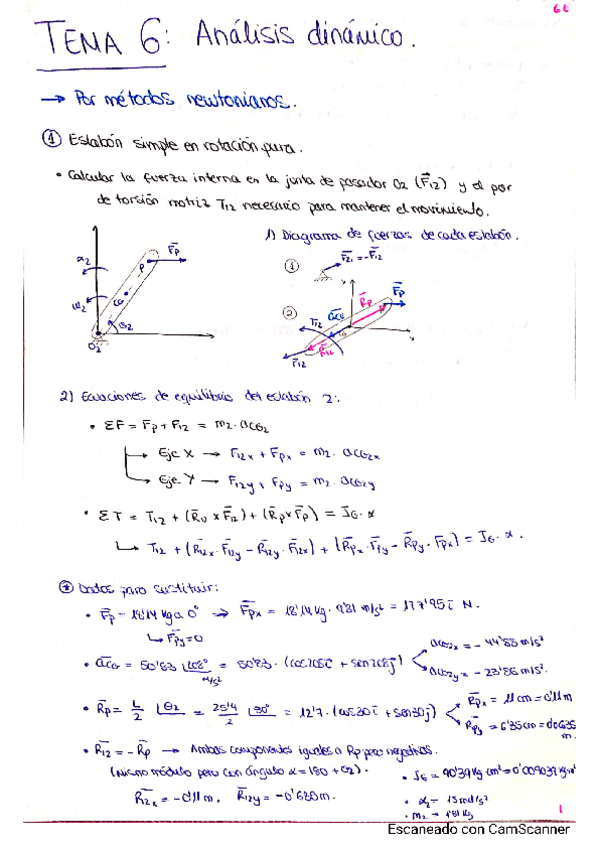 6E
TEMA 6: Análisis dinámico.
→ Por métodos newtonianos.
① Eslabón simple en rotación pura.
• Calcular la fuerza interna en la junta de pasador O2 (F̄12) y el par
de torsión motriz T12 necesario para mantener el movimiento.
1) Diagrama de fuerzas de cada eslabón.
α2
P
F̄p
CG
ω2
θ2
O2
①
F̄21 = -F̄12
②
y
T12
āCG
R̄p
F̄p
CG
R̄12
F̄12
x
2) Ecuaciones de equilibrio del eslabón 2:
• ΣF = F̄p + F̄12 = m2 · aCG2
Eje X → F12x + Fpx = m2 · aCG2x
Eje Y → F12y + Fpy = m2 · aCG2y
• ΣT = T12 + (R̄12 x F̄12) + (R̄p x F̄p) = IG · α
↳ T12 + (R̄12x · F̄12y - R̄12y · F̄12x) + (R̄px · F̄py - R̄py · F̄px) = IG · α.
Datos para sustituir:
• F̄p = 18'14 kg a 0° → F̄px = 18'14 kg · 9'81 m/s² = 177'95 i N.
↳ F̄py = 0
• āCG = 50'83 ∠208° m/s² = 50'83 · (cos208 i + sen208 j)
aCG2x = - 44'88 m/s²
aCG2y = - 23'86 m/s².
• R̄p = L/2 ∠θ2 = 25'4/2 ∠30° = 12'7 · (cos30 i + sen30 j)
R̄px = 11 cm = 0'11 m
R̄py = 6'35 cm = 0'0635 m.
• R̄12 = - R̄p → Ambas componentes iguales a Rp pero negativas.
(mismo módulo pero con ángulo α = 180 + θ2).
R̄12x = -0'11 m, R̄12y = -0'0635 m.
• IG = 90'39 kg cm² = 0'009039 kg m²
• α2 = 15 rad/s²
• m2 = 1'81 kg
1
Escaneado con CamScanner